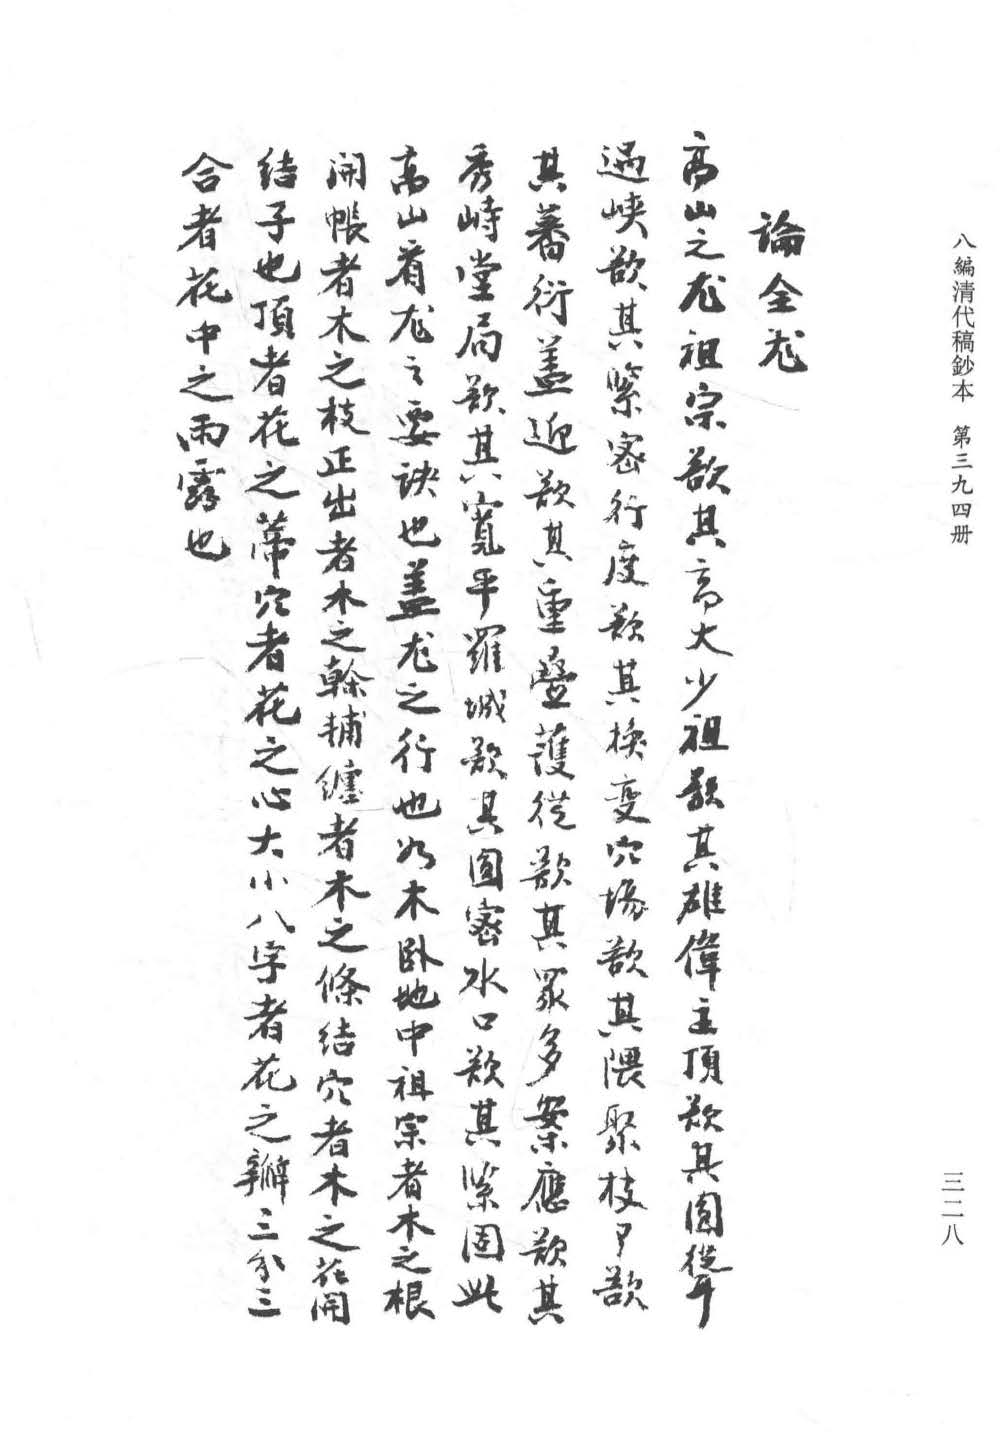 八編清代稿鈔本 第三九四册
三二八
論全龙
高山之龙祖宗欲其高大少祖欲其雄偉主頂欲其圓聳
過峽欲其緊密行度欲其換变穴塲欲其隈聚枝卩欲
其蕃衍盖迎欲其重疊護從欲其眾多案應欲其
秀峙堂局欲其寬平羅城欲其圓密水口欲其緊固此
高山看龙之要訣也盖龙之行也如木卧地中祖宗者木之根
開帳者木之枝正出者木之榦輔纏者木之條結穴者木之花開
结子也頂者花之蒂穴者花之心大小八字者花之瓣三分三
合者花中之雨露也